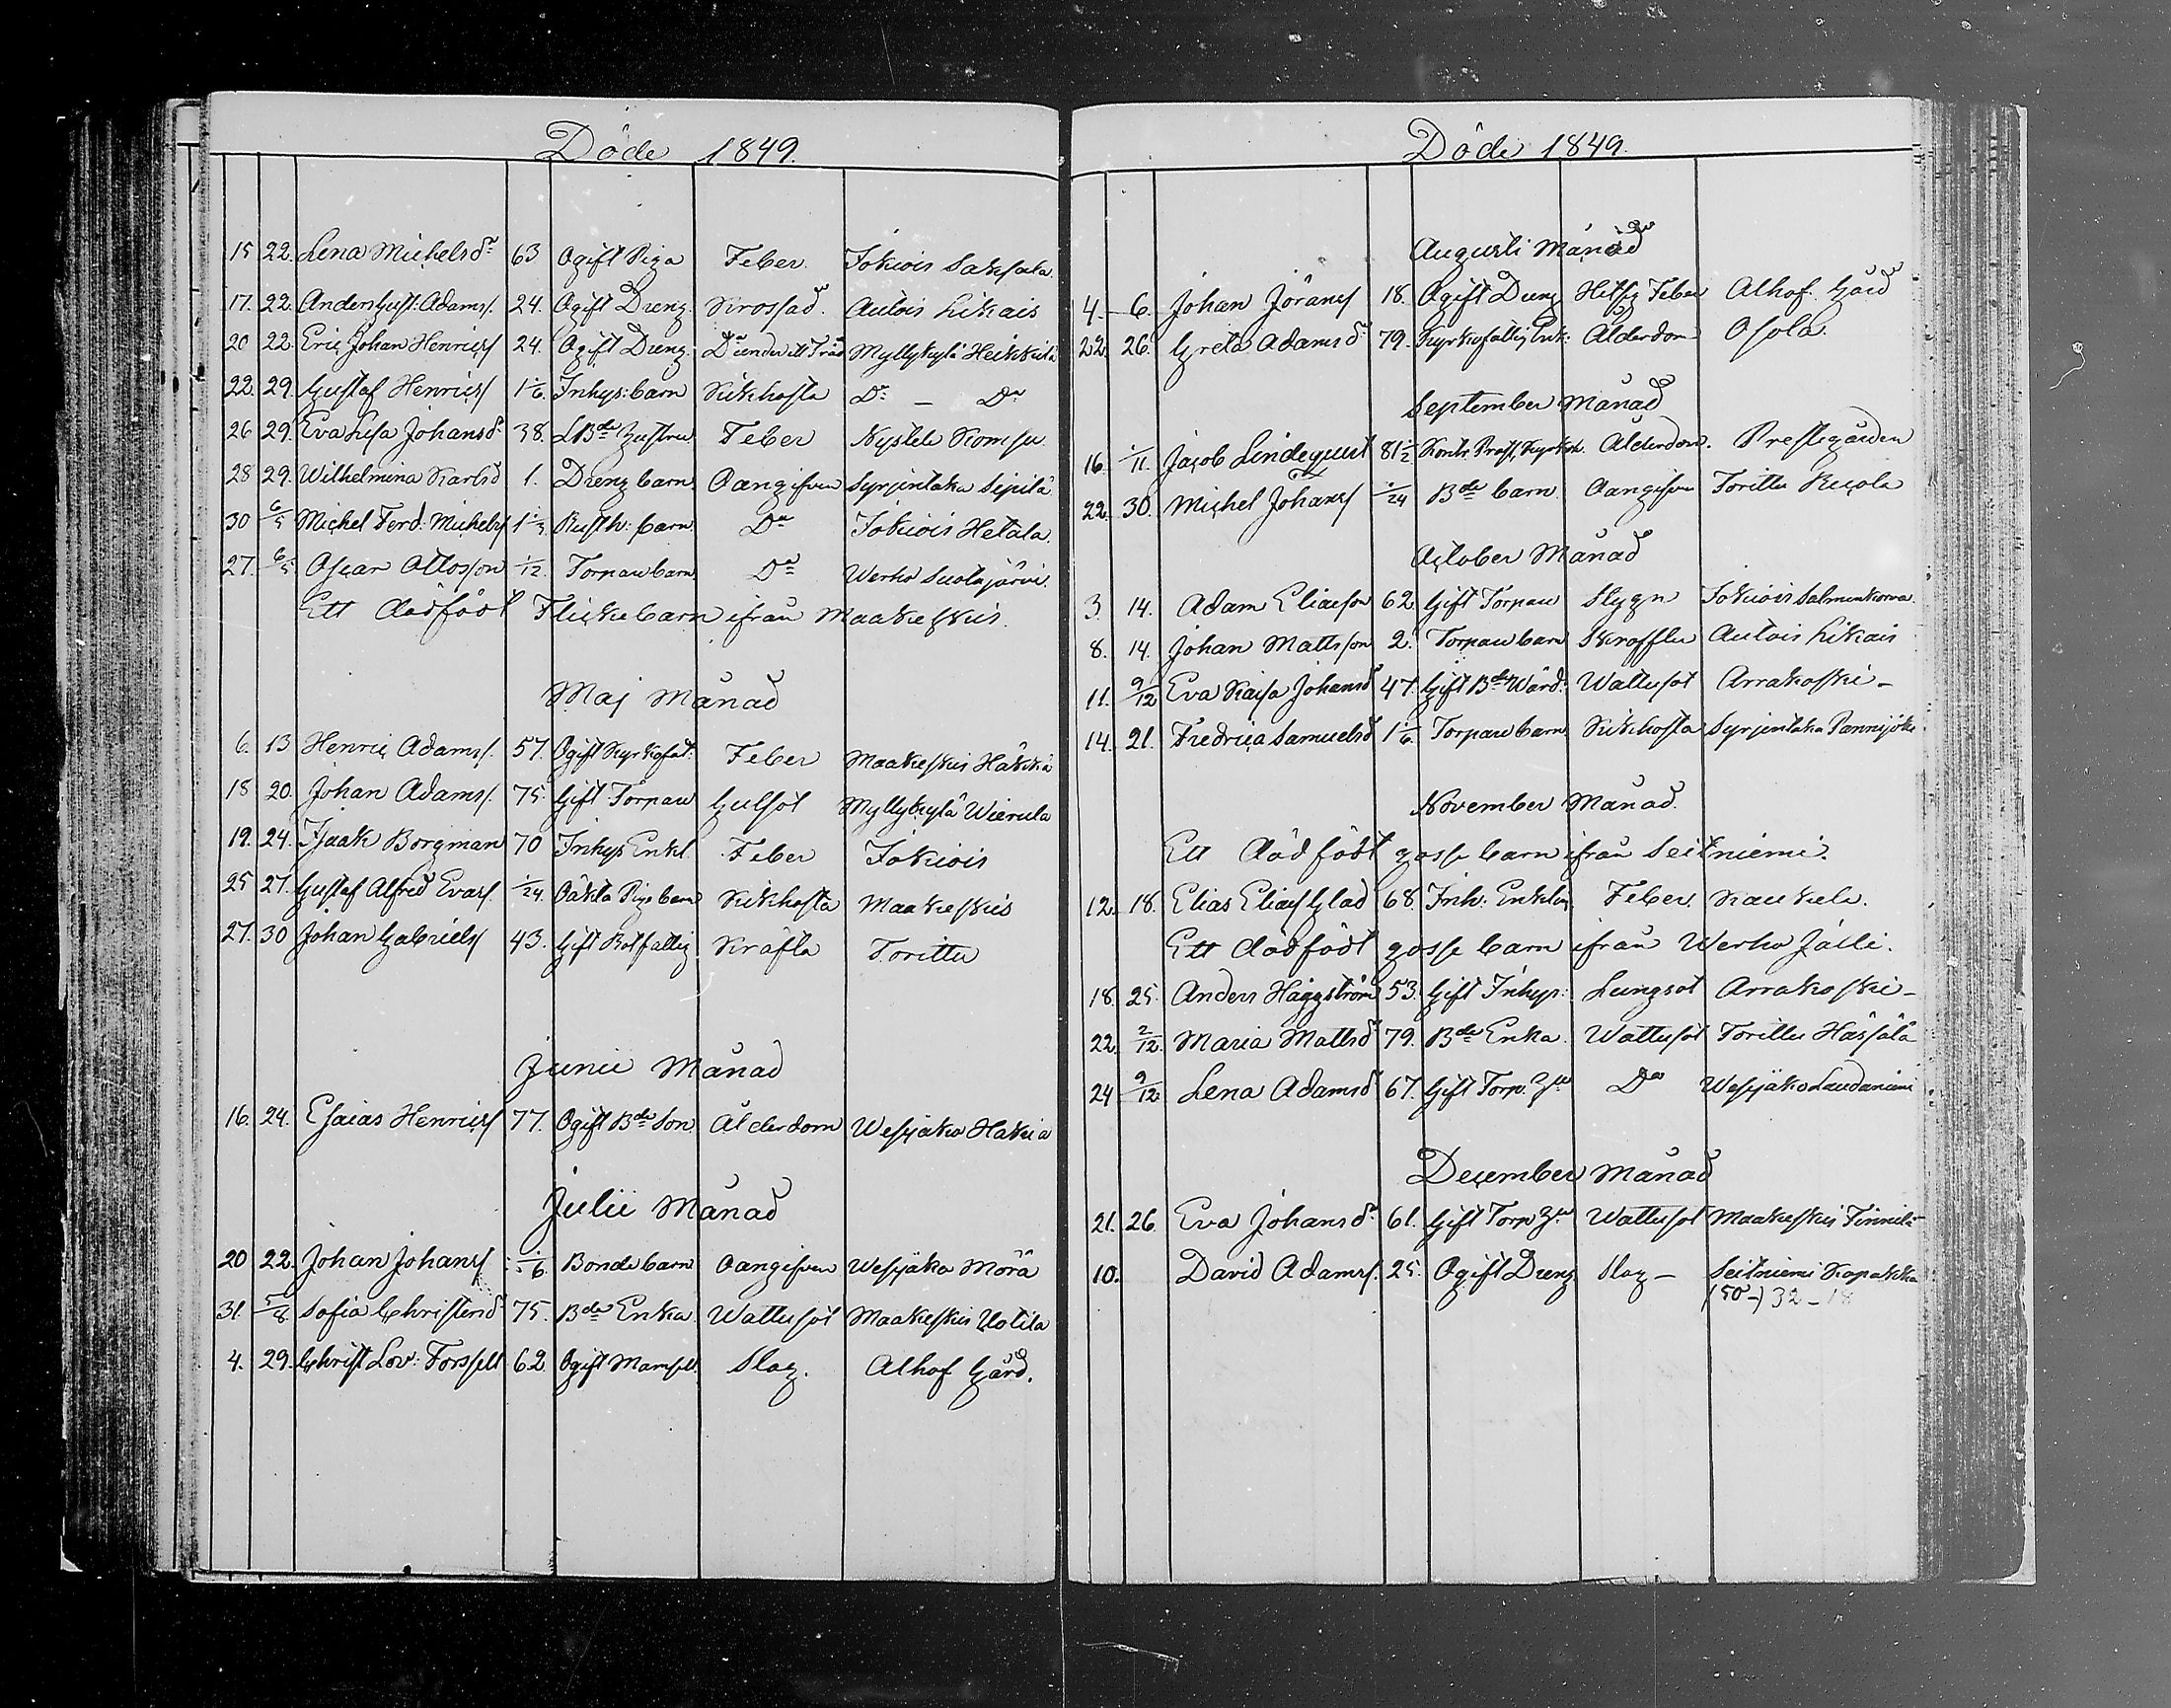 Döde 1849.
15 22. Lena Michelsdr 63 Ogift Piga Feber. Jokiois Saksala
17. 22. Anders Gust: Adamss. 24. Ogift Dreng. Krossad. Autois Likais
20 22. Eric Johan Henricss 24. Ogift Dreng. Myllykylä Heikkilä
22. 29. Gustaf Henricss 1 1/6. Inhys: barn Kikhosta Do — Do
26 29. Eva Lisa Johansdr 38. Bde Hustru Feber Nystele Komsu
28 29. Wilhelmina Karlsd 1. Dreng barn. Oangifven Syrjintaka Sipilä
30 6/5 Michel Ferd: Michelss Rusth: barn. Do Jokiois Hetala.
27. 6/5. Oscar Ottosson 1/12. Torpare barn Do Werho Suolajärvi.
Ett dödfödt Flickebarn ifrån Maakeskis.
Maj Månad
6. 13 Henric Adamss. 57. Ogift Kyrkofat: Feber Maakeskis Häkkä
18 20. Johan Adamss. 75. Gift Torpare Gulsot Myllykylä Wierula
19. 24. Isaak Borgman 70 Inhys Enkl. Feber Jokiois
25 27. Gustaf Alfred Evass. 1/24. Oäkta Pigo barn Kikhosta Maakeskis
27. 30 Johan Gabrielss 43. Gift Rotfattig Kräfta Torittu
Junii Månad
16. 24. Esaias Henricss 77. Ogift Bde Son Ålderdom Wesijako Hakia
Julii Månad
20 22. Johan Johanss 1/6. Bonde barn Oangifven Wesijako Mörä
31. 5/8. Sofia Christersdr 75. Bde Enka Wattusot Maakeskis Uotila
4. 29. Christ Lov: Forssell 62 Ogift Mamsell. Slag. Alhof Gård.
Döde 1849.
Augusti Månad
4. 6. Johan Jöranss 18. Ogift Dreng Hitsig Feber Alhof. Gård
22. 26. Greta Adamsdr 79. Kyrkofattig Enk: Ålderdom Osola.
September Månad
16. 1/11. Jacob Lindequist 81 1/2 Kontr. Prost, Kyrkoh. Ålderdom. Prestegården
22. 30. Michel Johanss 1/24 Bde barn. Oangifven Torittu Recola
October Månad
3. 14. Adam Eliasson 62. Gift Torpare Stygn Jokiois Salmenkorva.
8. 14. Johan Mattsson 2. Torpare barn Skroffler Autois Likais
11. 9/12 Eva Kaisa Johansd 47. Gift Bde Wärd. Wattusot Arrakoski –
14. 21. Fredrica Samuelsd 1 1/6. Torpare barn Kikhosta Syrjintaka
November Månad.
Ett dödfödt gosse barn ifrån Seitniemi.
12. 18. Elias Eliass Glad 68. Inh: Enkling Feber. Kaukela.
Ett dödfödt gosse barn ifrån Werho Jaili.
18. 25. Anders Häggström 53. Gift Inhys: Lungsot Arrakoski –
22. 2/12. Maria Mattsdr 79. Bde Enka. Wattusot Torittu Hassala
24 9/12 Lena Adamsdr 67. Gift Torp. Hu Do Wesijako Laudaniemi
December Månad
21. 26. Eva Johansdr 61. Gift Torp Hu Wattusot Maakeskis
10. David Adamss. 25. Ogift Dreng Slag – Seitniemi Kopakka
(50–) 32 – 18